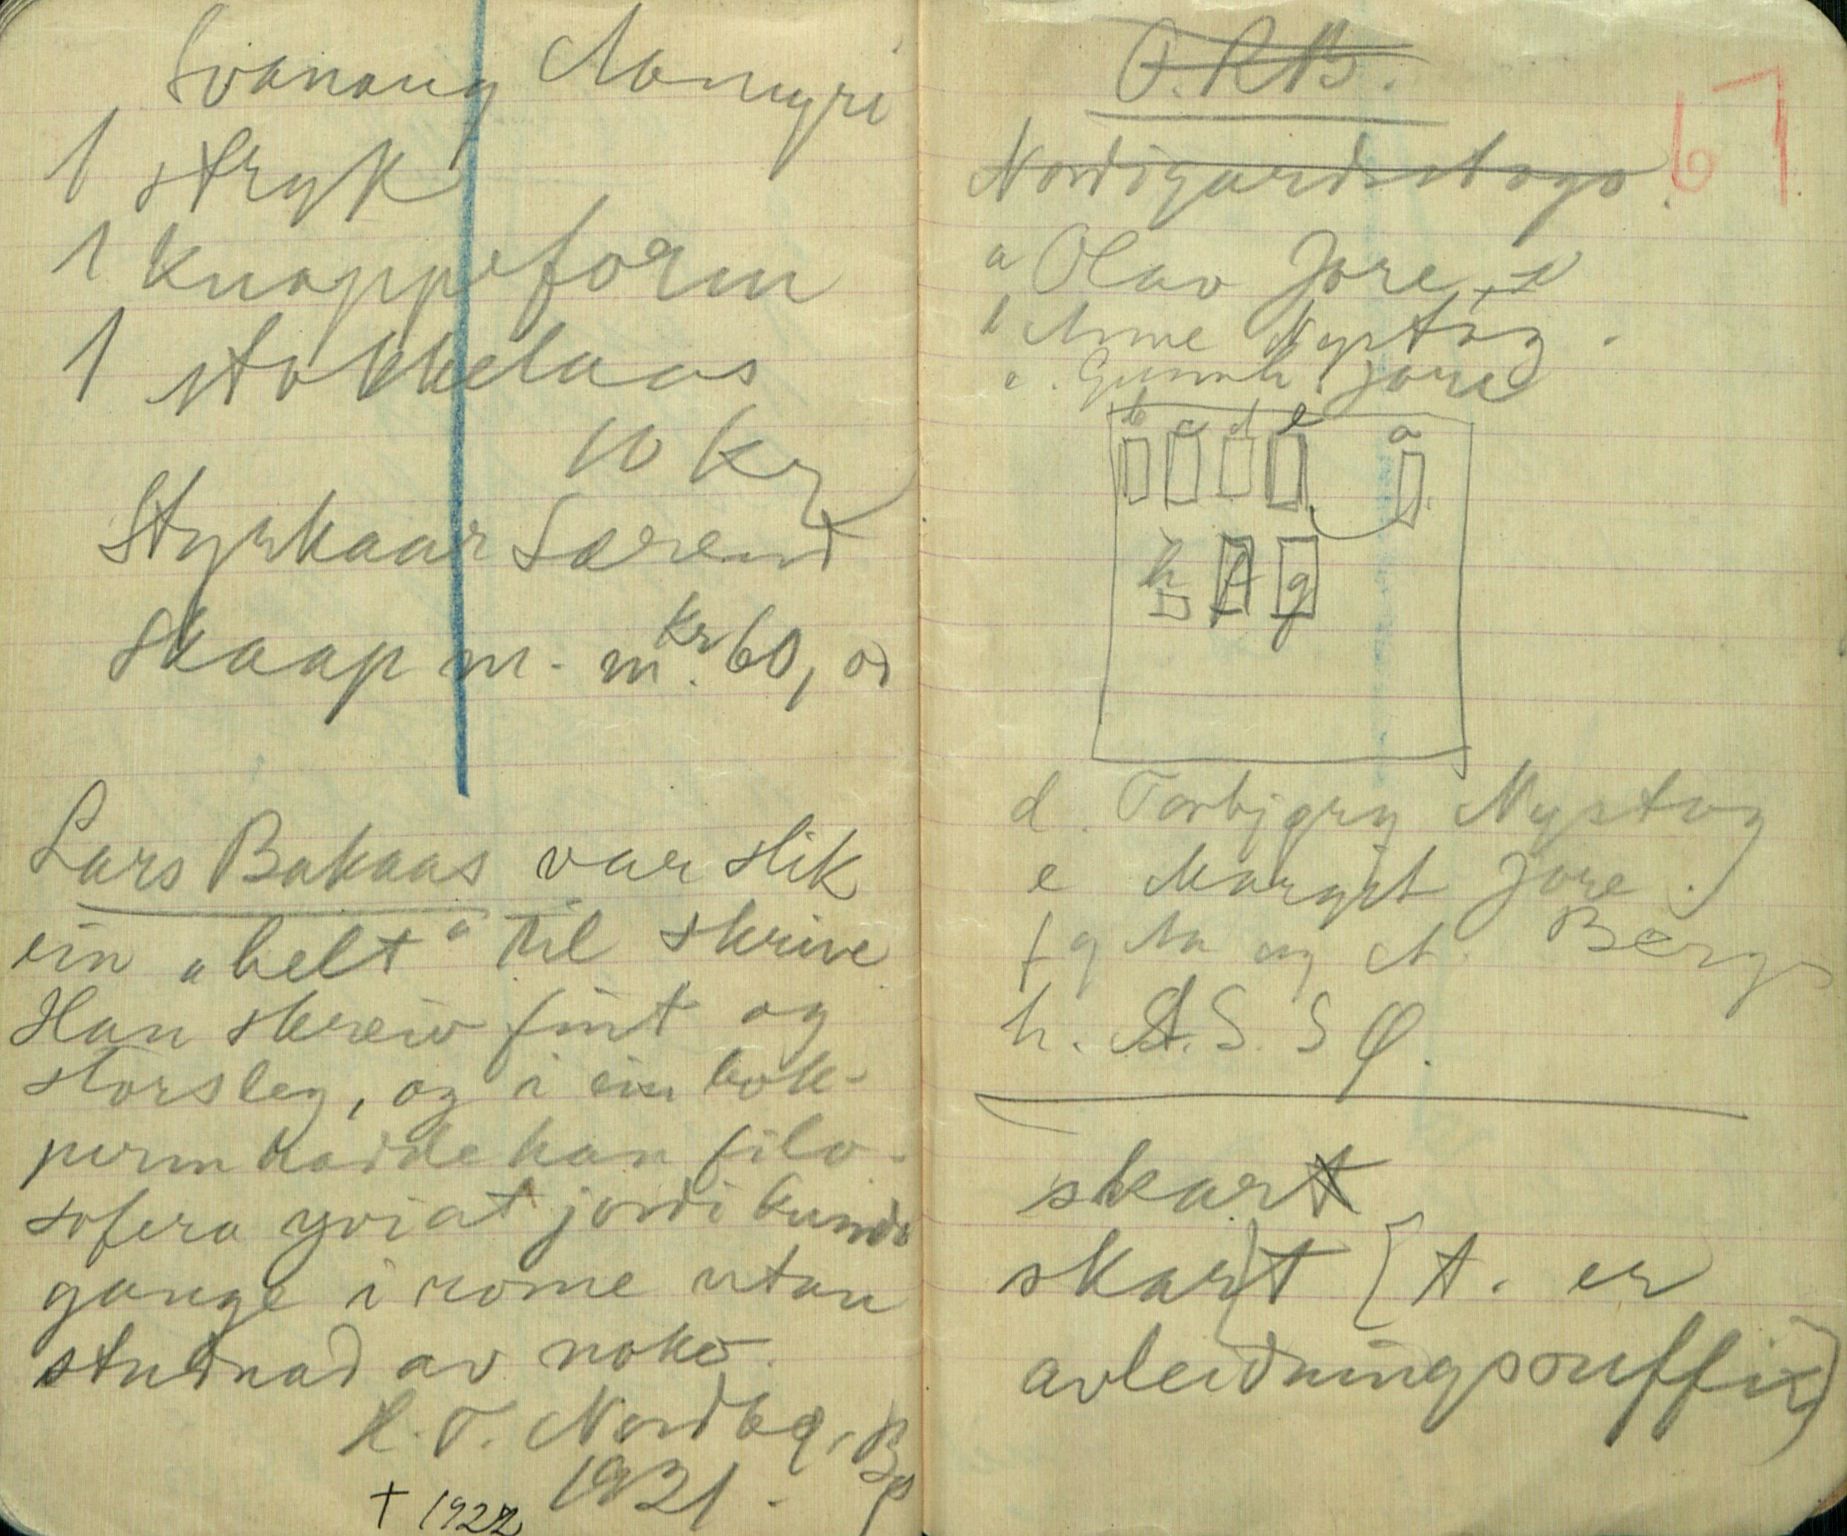 Svanaug Aamyri
1 stryk
1 knappeform
1 stokkelaas
10 kr
Styrkaar Særend
Skaap m. m. kr 60,00
Lars Bakaas var slik
ein „helt" til skrive
Han skreiv fint og
storsleg, og i ein bok-
perm hadde han filo-
sofera yvi at jordi kunde
gange i rome utan
studnad av noko.
H. T. Nordbø, Bø
1921.
† 1922
O.R.B.
67
Nordigardsstogo
a Olav Jore
b Anne Nystog.
c. Gunnh. Jore
b c d e a
h f g
d. Torbjørg Nystog
e Margit Jore.
f g Aa og A. Berge
h. A. S. S Ø.
skart
skar)t [t. er
avleidningssuffix)